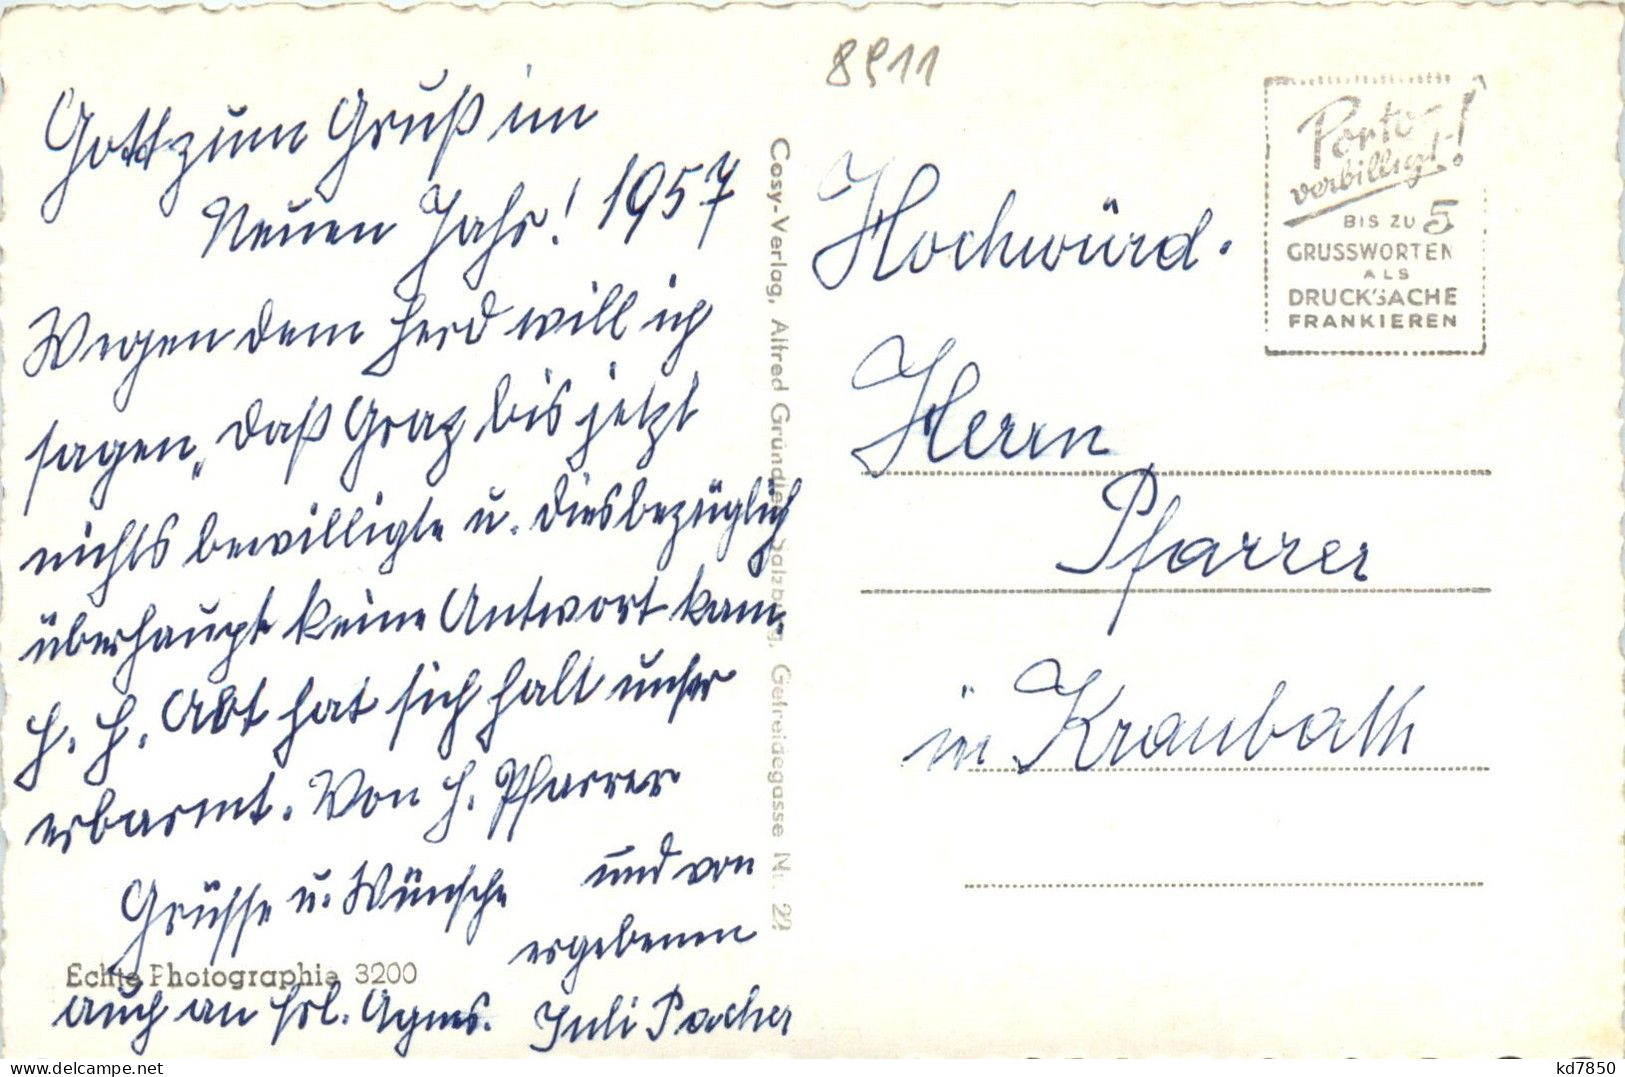 8911
Gott zum Gruß im
Neuen Jahr! 1957
Wegen dem Herd will ich
sagen, daß Graz bis jetzt
nichts bewilligte u. diesbezüglich
überhaupt keine Antwort kam.
H. H. Abt hat sich halt unser
erbarmt. Von H. Pfarrer
Grüsse u. Wünsche und von
ergebenen
auch an Frl. Agnes. Juli Pacher
Echte Photographie 3200
Cosy-Verlag, Alfred Gründler, Salzburg, Getreidegasse Nr. 22
Porto-
verbilligt!
BIS ZU 5
GRUSSWORTEN
ALS
DRUCKSACHE
FRANKIEREN
Hochwürd.
Herrn
Pfarrer
in Kraubath
www.delcampe.net
kd7850